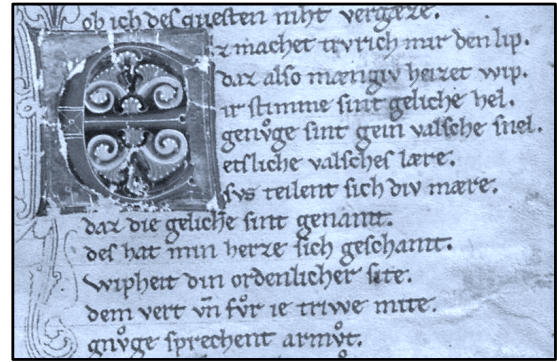 ob ich des questen niht vergeze.
Ez machet trvrich mir den lip.
daz also mængiv heizet wip.
ir stimme sint geliche hel.
genvͦge sint gein valsche snel.
etsliche valsches lære.
svs teilent sich div mære.
daz die geliche sint genamt.
des hat min herze sich geschamt.
wipheit din ordenlicher site.
dem vert vn̄ fvͦr ie triwe mite.
gnvͦge sprechent armvͦt.